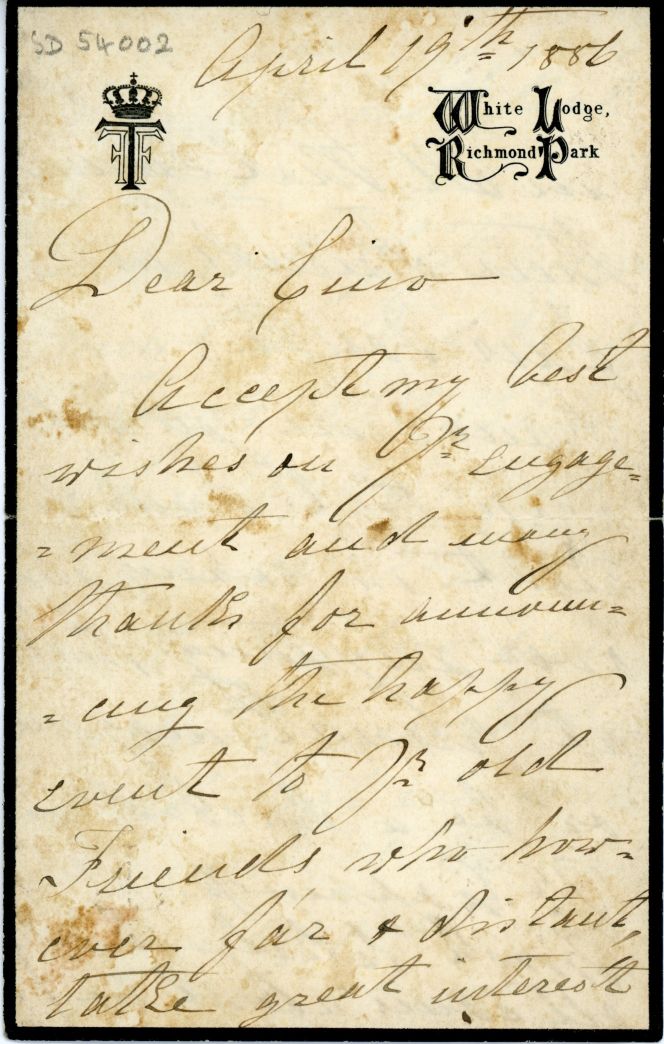 SD 54002
April 19th 1886
White Lodge,
Richmond Park
Dear
Accept my best
wishes on Yr engage=
=ment and many
thanks for announ=
=cing the happy
event to Yr old
Friends who how=
ever far & distant,
take great interest